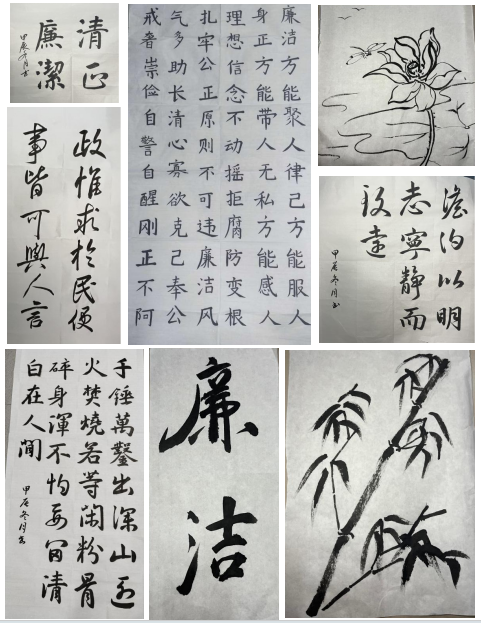 清正
廉潔
甲辰冬月书
廉洁方能聚人律己方能服人
身正方能带人无私方能感人
理想信念不动摇拒腐防变根
扎牢公正原则不可违廉洁风
气多助长清心寡欲克己奉公
戒奢崇俭自警自醒刚正不阿
政惟求於民便
事皆可與人言
澹泊以明
志寧靜而
致遠
甲辰冬月书
千錘萬鑿出深山烈
火焚燒若等閑粉骨
碎身渾不怕要留清
白在人間
甲辰冬月书
廉洁